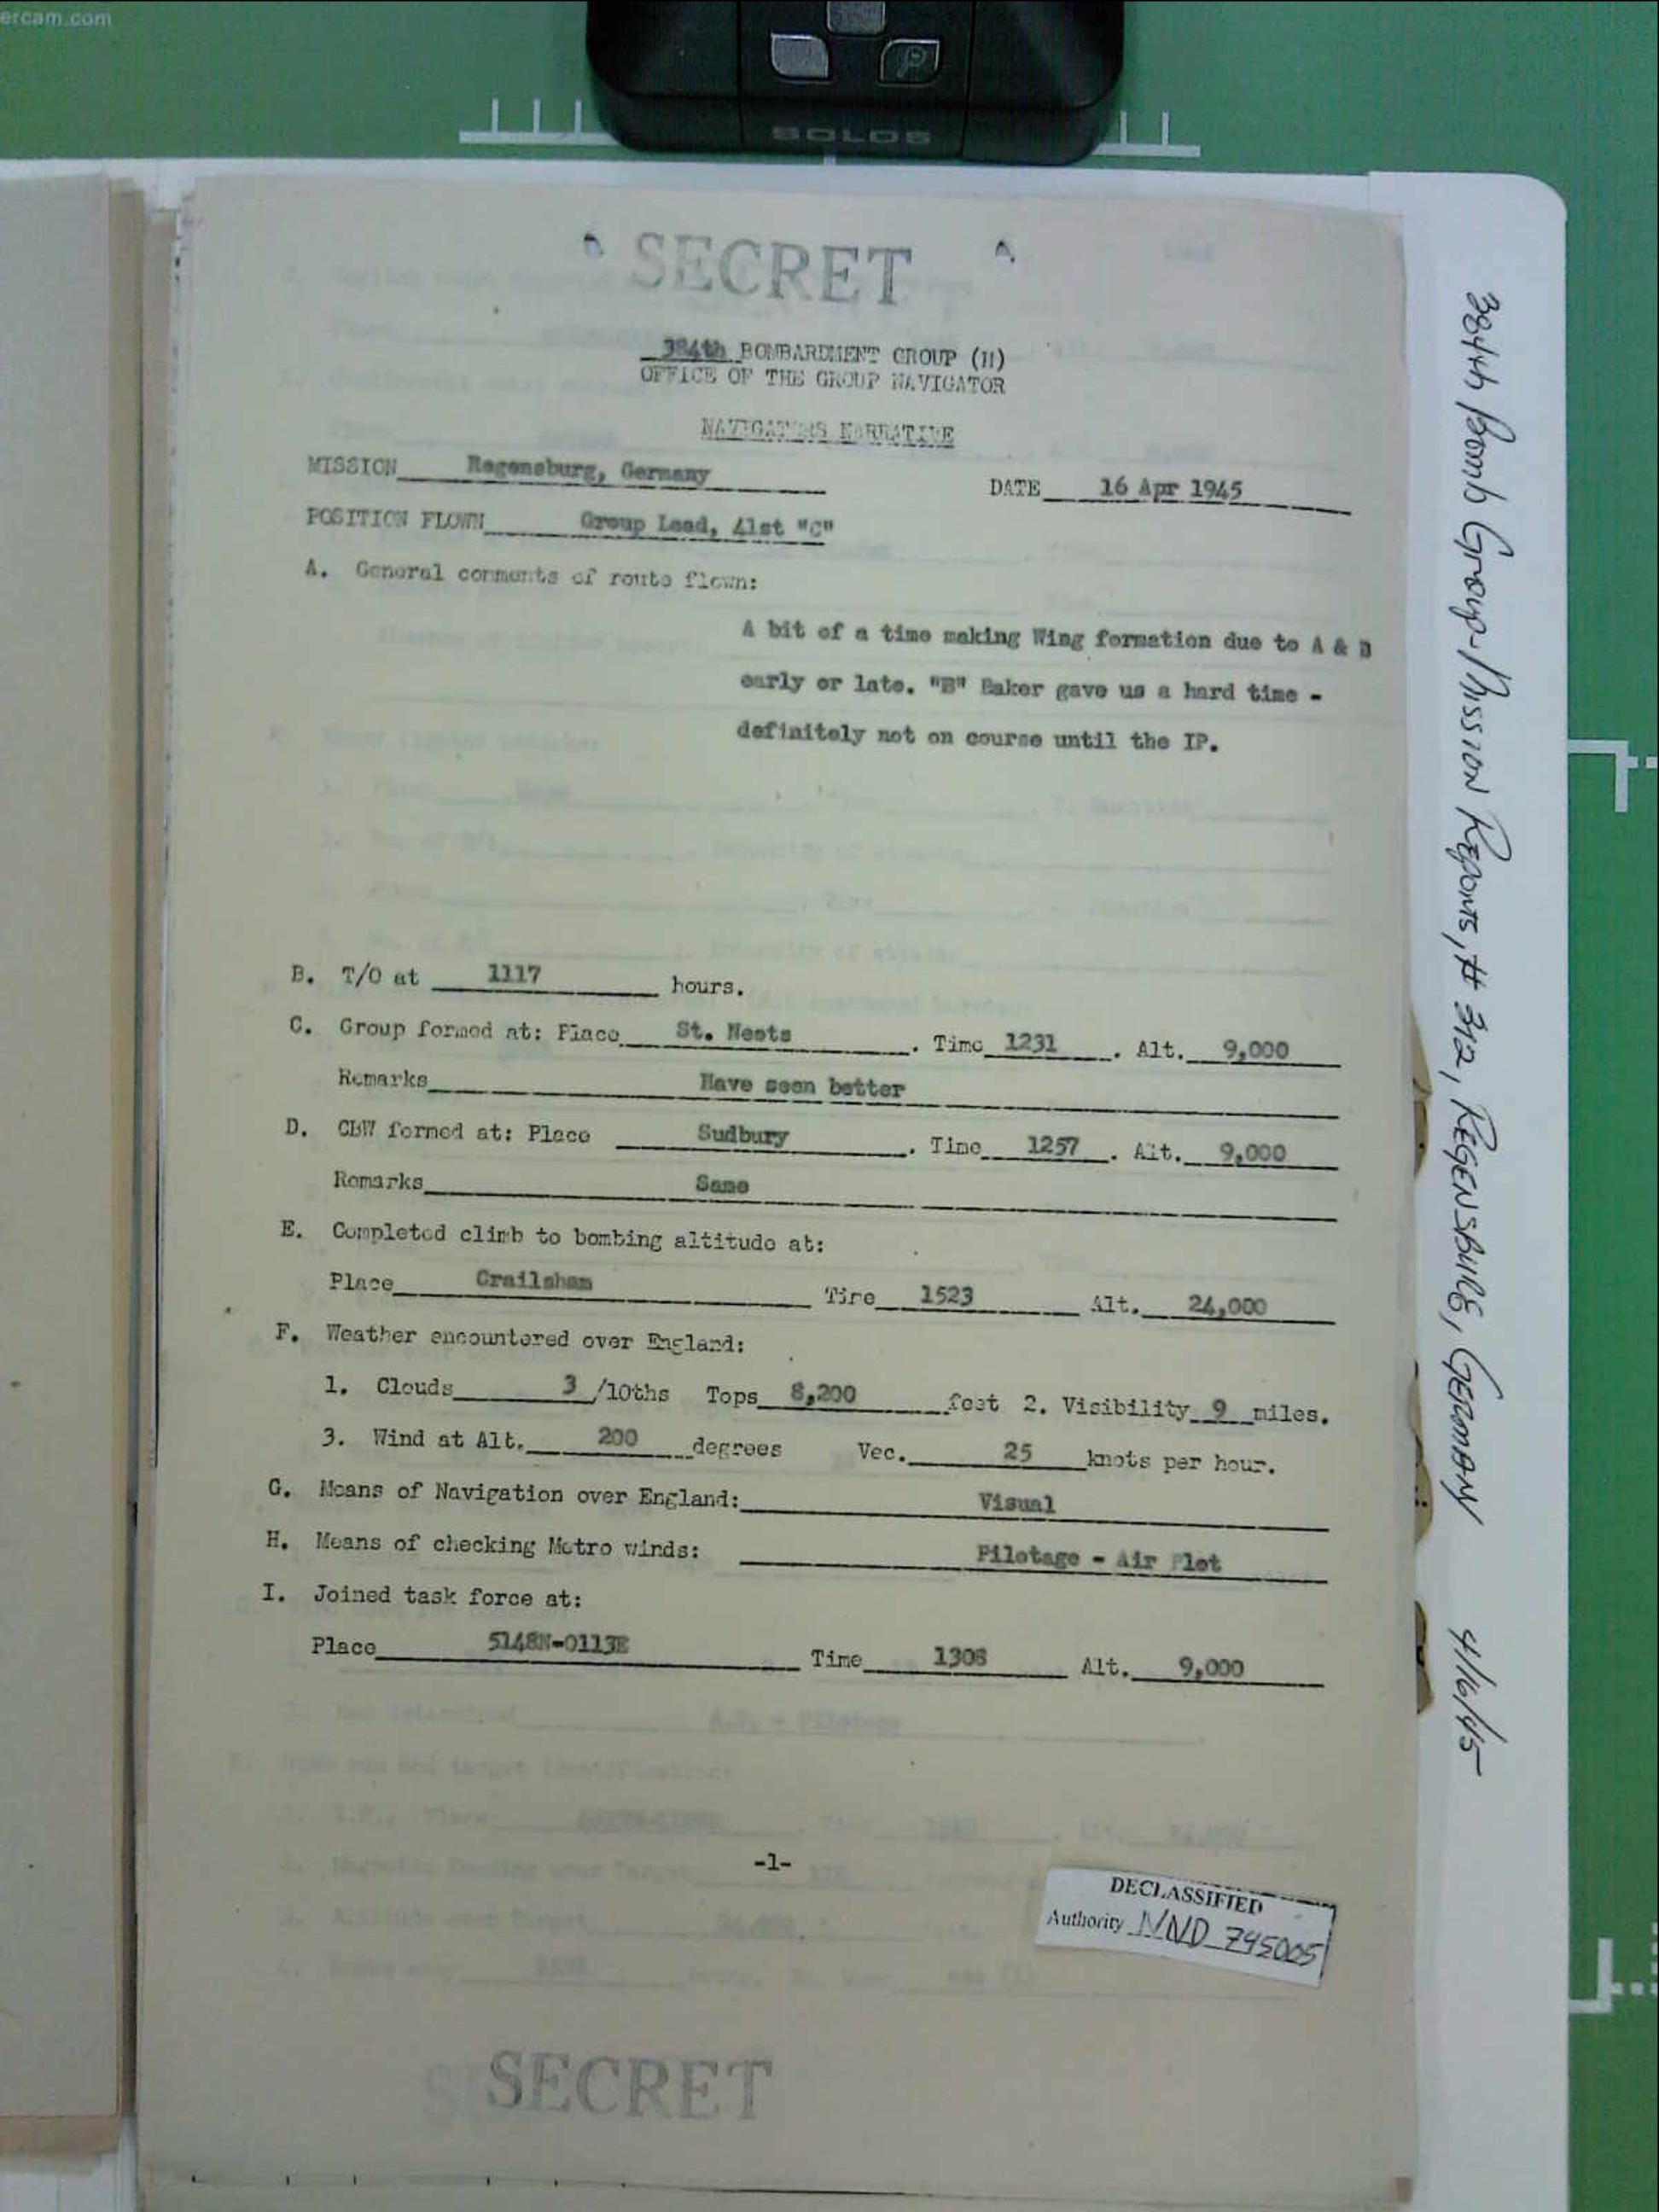 ercam.com
SOLOS
SECRET
384th BOMBARDMENT GROUP (H)
OFFICE OF THE GROUP NAVIGATOR
NAVIGATORS NARRATIVE
MISSION Regensburg, Germany
DATE 16 Apr 1945
POSITION FLOWN Group Lead, 41st "C"
A. General comments of route flown:
A bit of a time making Wing formation due to A & B
early or late. "B" Baker gave us a hard time -
definitely not on course until the IP.
B. T/O at 1117 hours.
C. Group formed at: Place St. Neots . Time 1231 . Alt. 9,000
Remarks Have seen better
D. CBW formed at: Place Sudbury . Time 1257 . Alt. 9,000
Remarks Same
E. Completed climb to bombing altitude at:
Place Crailsham Time 1523 Alt. 24,000
F. Weather encountered over England:
1. Clouds 3 /10ths Tops 8,200 feet 2. Visibility 9 miles.
3. Wind at Alt. 200 degrees Vec. 25 knots per hour.
G. Means of Navigation over England: Visual
H. Means of checking Metro winds: Pilotage - Air Plot
I. Joined task force at:
Place 5148N-0113E Time 1308 Alt. 9,000
-1-
DECLASSIFIED
Authority NND 745005
SECRET
384th Bomb Group-Mission Reports, # 312, REGENSBURG, GERMANY 4/16/45